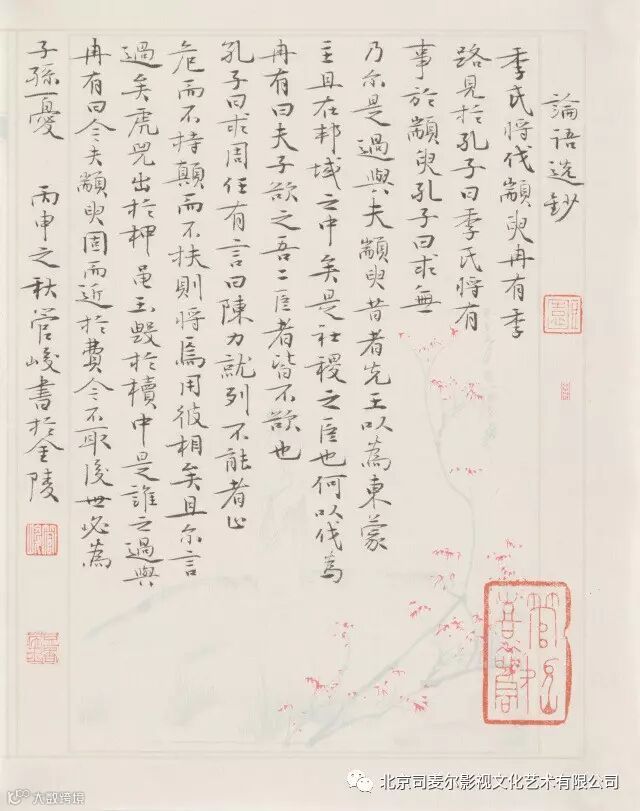 論語选鈔
季氏將伐顓臾冉有季
路見於孔子曰季氏將有
事於顓臾孔子曰求無
乃尔是過與夫顓臾昔者先王以為東蒙
主且在邦域之中矣是社稷之臣也何以伐為
冉有曰夫子欲之吾二臣者皆不欲也
孔子曰求周任有言曰陳力就列不能者止
危而不持顛而不扶則將焉用彼相矣且尔言
過矣虎兕出於柙龜玉毀於櫝中是誰之過與
冉有曰今夫顓臾固而近於費今不取後世必為
子孫憂
丙申之秋管峻書於金陵
北京司麦尔影视文化艺术有限公司
大数跨境